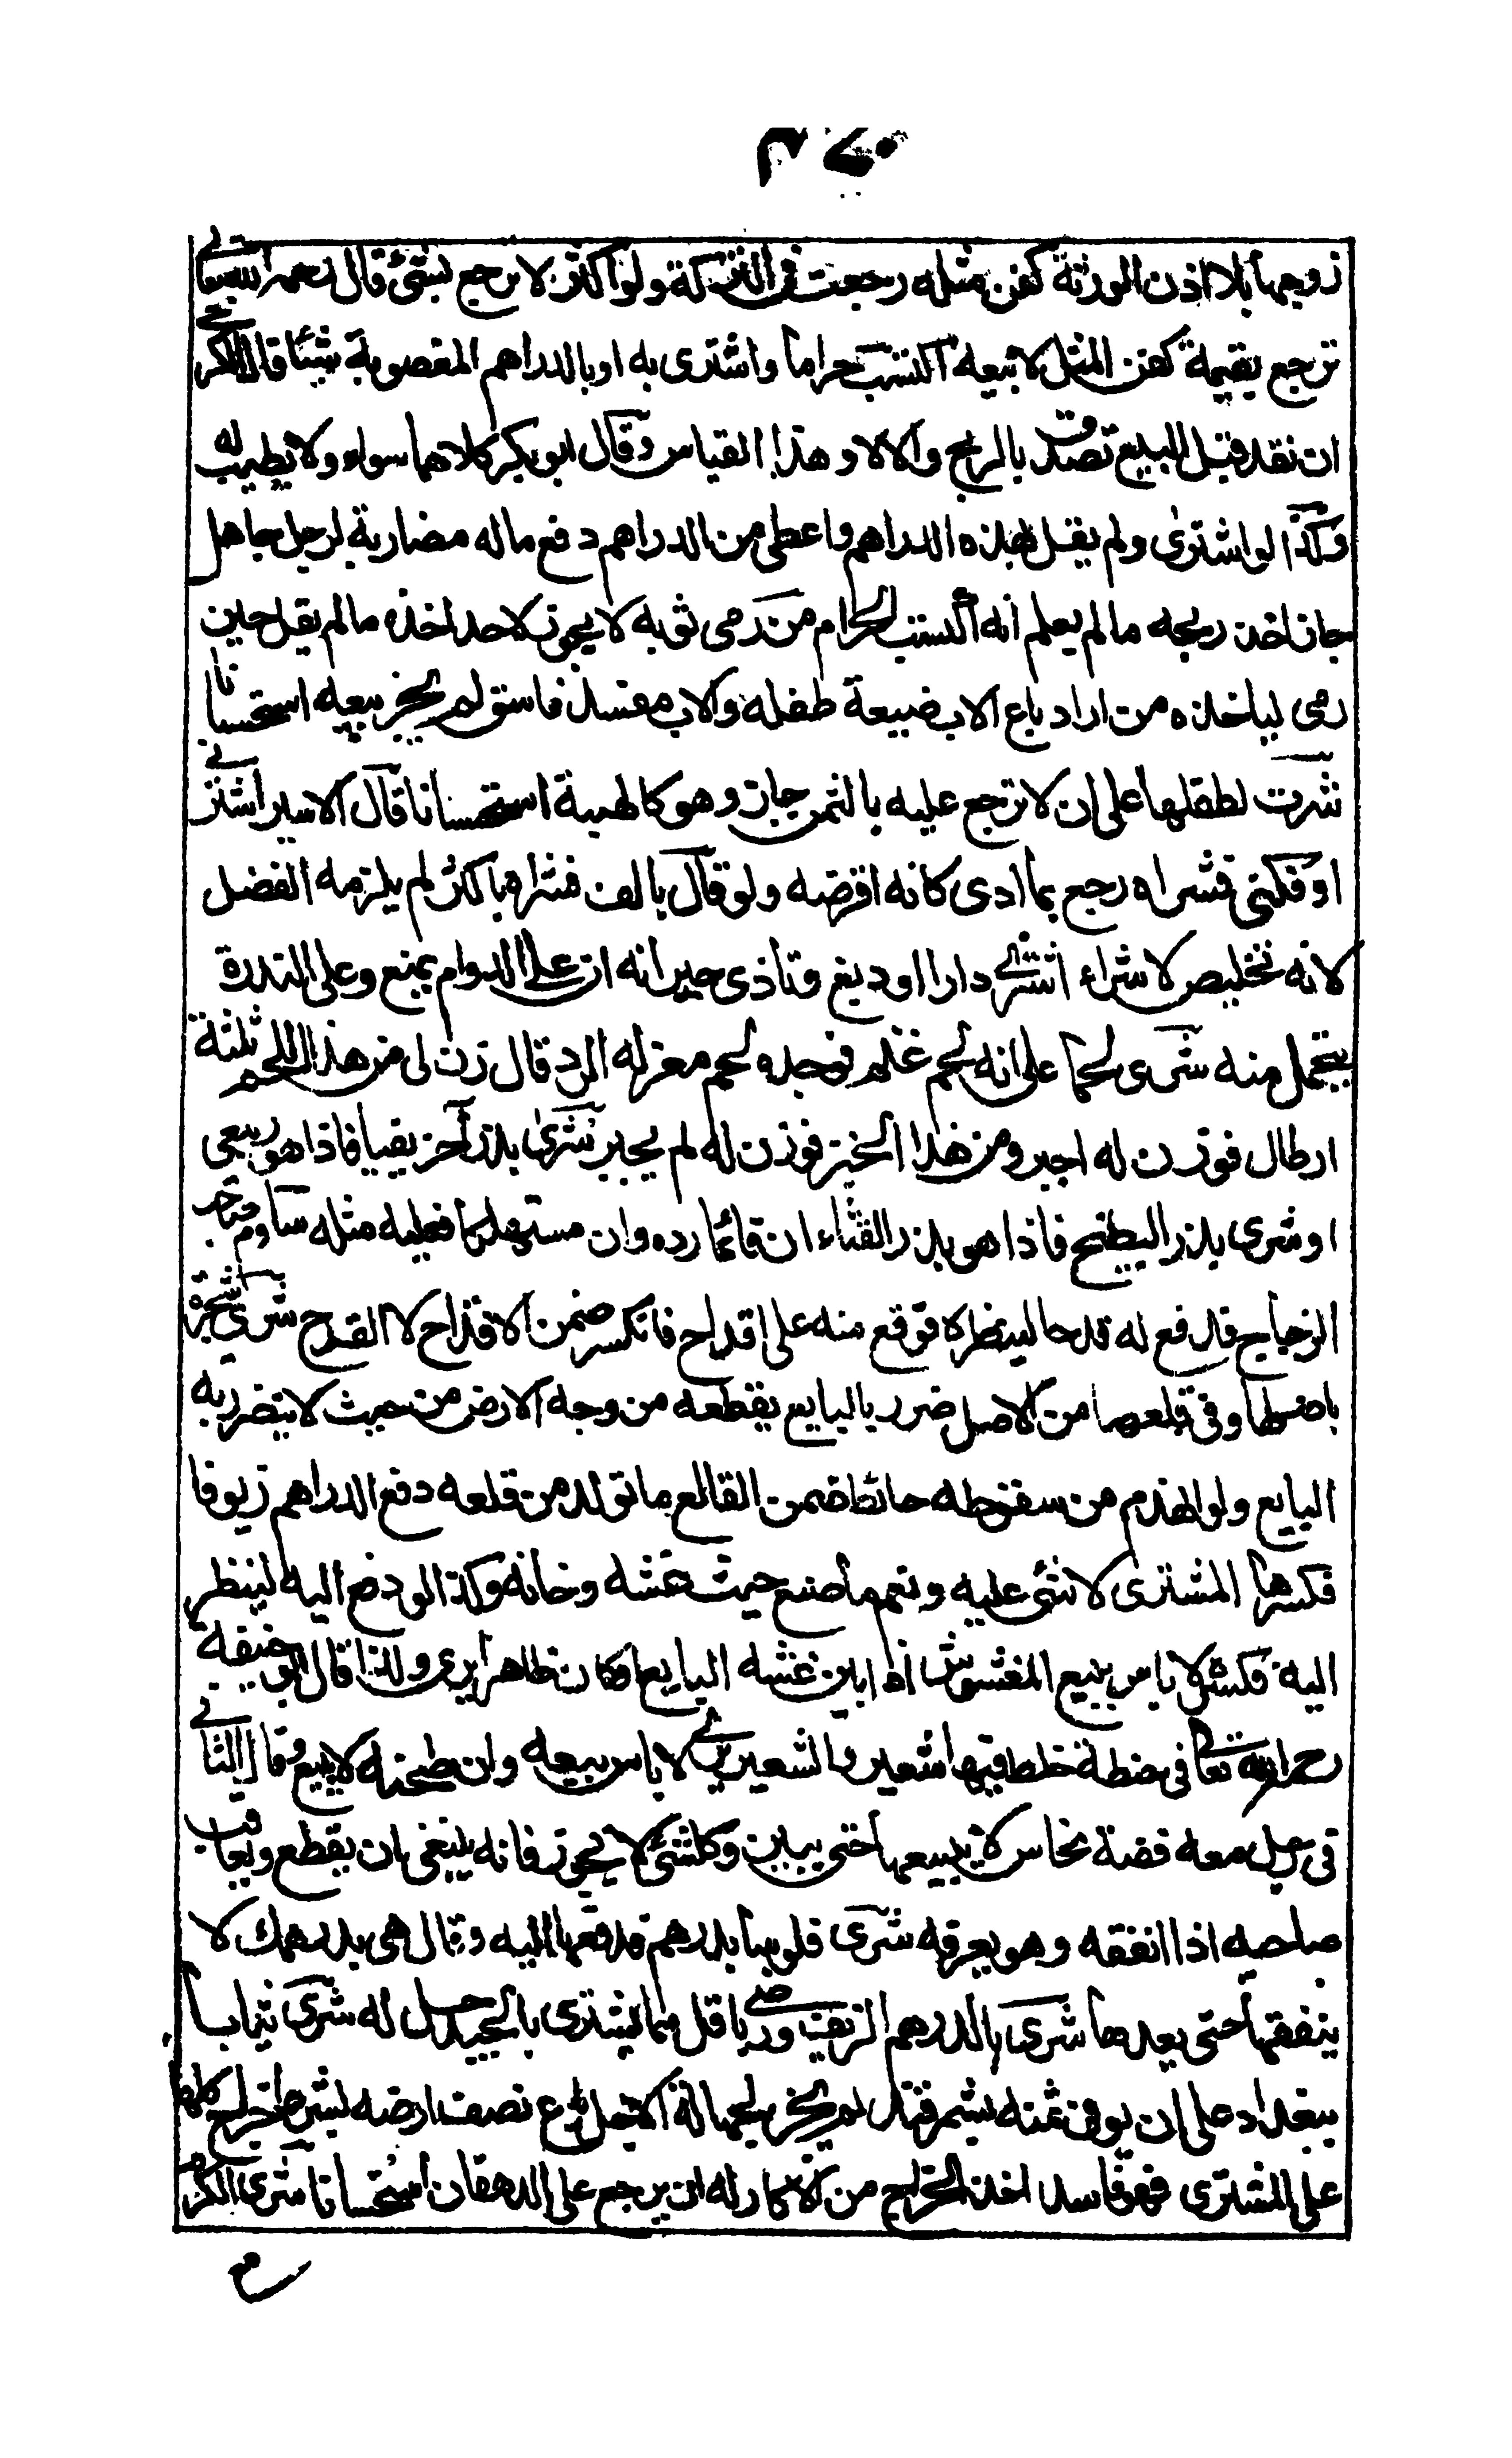 زوجها بلا اذن الورثة كفن مثله رجعت في التركة ولو اكثر لا ترجع بشئ قال رحمه الله تعالى
ترجع بقيمة كفن المثل لا تبيعه اكتسب حراما واشترى به او بالدراهم المغصوبة شيئا قال الكرخي
ان نقد قبل البيع تصدق بالربح والا لا وهذا القياس وقال ابو بكر كلاهما سواء ولا يطيب له
وكذا لو اشترى ولم يقل بهذه الدراهم واعطى من الدراهم دفع ماله مضاربة لرجل جاهل
جاز اخذ ربحه ما لم يعلم انه اكتسب الحرام من رمى ثوبه لا يجوز لاحد اخذه ما لم يقل حين
رمى لياخذه من اراد باع الاب ضيعة طفله والاب مفسد فاسق لم يجز بيعه استحسانا
شرت لطفلها على ان لا ترجع عليه بالثمن جاز وهو كالهبة استحسانا قال الاسير اشترني
او فكني فشراه رجع بما ادى كانه اقرضه ولو قال بالف فشراه باكثر لم يلزمه الفضل
لانه تخليص لا شراء اشترى دارا او دبغ وتاذى جيرانه ان على الدوام يمنع وعلى الندرة
يتحمل منه شرى لحما على انه لحم غنم فوجده لحم معز له الرد قال زن لى من هذا اللحم ثلثة
ارطال فوزن له اجبر ومن هذا الخبز فوزن له لم يجبر شرى بذر اخر يفيا فاذا هو ربيعي
او شرى بذر البطيخ فاذا هو بذر القثاء ان قائما رده وان مستهلكا فعليه مثله ساوم صاحب
الزجاج فدفع له قدحا لينظره فوقع منه على اقداح فانكسر ضمن الاقداح لا القدح شرى شجرة
باصلها وفى قلعها من الاصل ضرر بالبايع يقطعه من وجه الارض من حيث لا يتضرر به
البايع ولو انهدم من سقوطه حائط ضمن القالع ما تولد من قلعه دفع الدراهم زيوفا
فكسرها المشترى لا شئ عليه ونعم ما صنع حيث غشه وخانه وكذا لو دفع اليه لينظر
اليه فكسره لا باس ببيع المغشوش اذا ابين غشه البايع او كان ظاهرا يرى ولذا قال ابو حنيفة
رحمه الله تعالى فى حنطة خلط فيها شعير والشعير يرى لا باس ببيعه وان طحنه لا يبيع وقال الثاني
فى رجل معه فضة نحاس لا يبيعها حتى يبين وكل شئ لا يجوز فانه ينبغى ان يقطع ويعاقب
صاحبه اذا انفقه وهو يعرفه شرى فلوسا بدرهم فدفعها اليه وقال هى بدرهمك لا
ينفقها حتى يعدها شرى بالدرهم الزيف ورضى باقل مما يشترى بالجيد حل له شرى ثيابا
ببغداد على ان يوفى ثمنه بسمرقند لم يجز لجهالة الاجل باع نصف ارضه بشرط خراج كلها
على المشترى فهو فاسد اخذ الخراج من الاكار له ان يرجع على الدهقان استحسانا شرى الكرم
مع